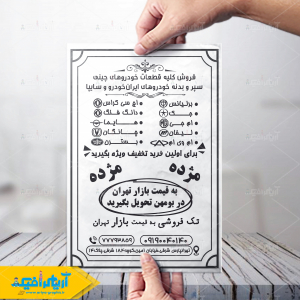 فروش کلیه قطعات خودروهای چینی
سپر و بدنه خودروهای ایران‌خودرو و سایپا
برلیانس
اچ سی کراس
جک
دانگ فنگ
ام جی
هایما
لیفان
چانگان
ام وی ام
بسترن
برای اولین خرید تخفیف ویژه بگیرید
مژده
مژده
به قیمت بازار تهران
در بومهن تحویل بگیرید
تک فروشی به قیمت بازار تهران
۰۹۱۹۰۰۴۰۱۴۰